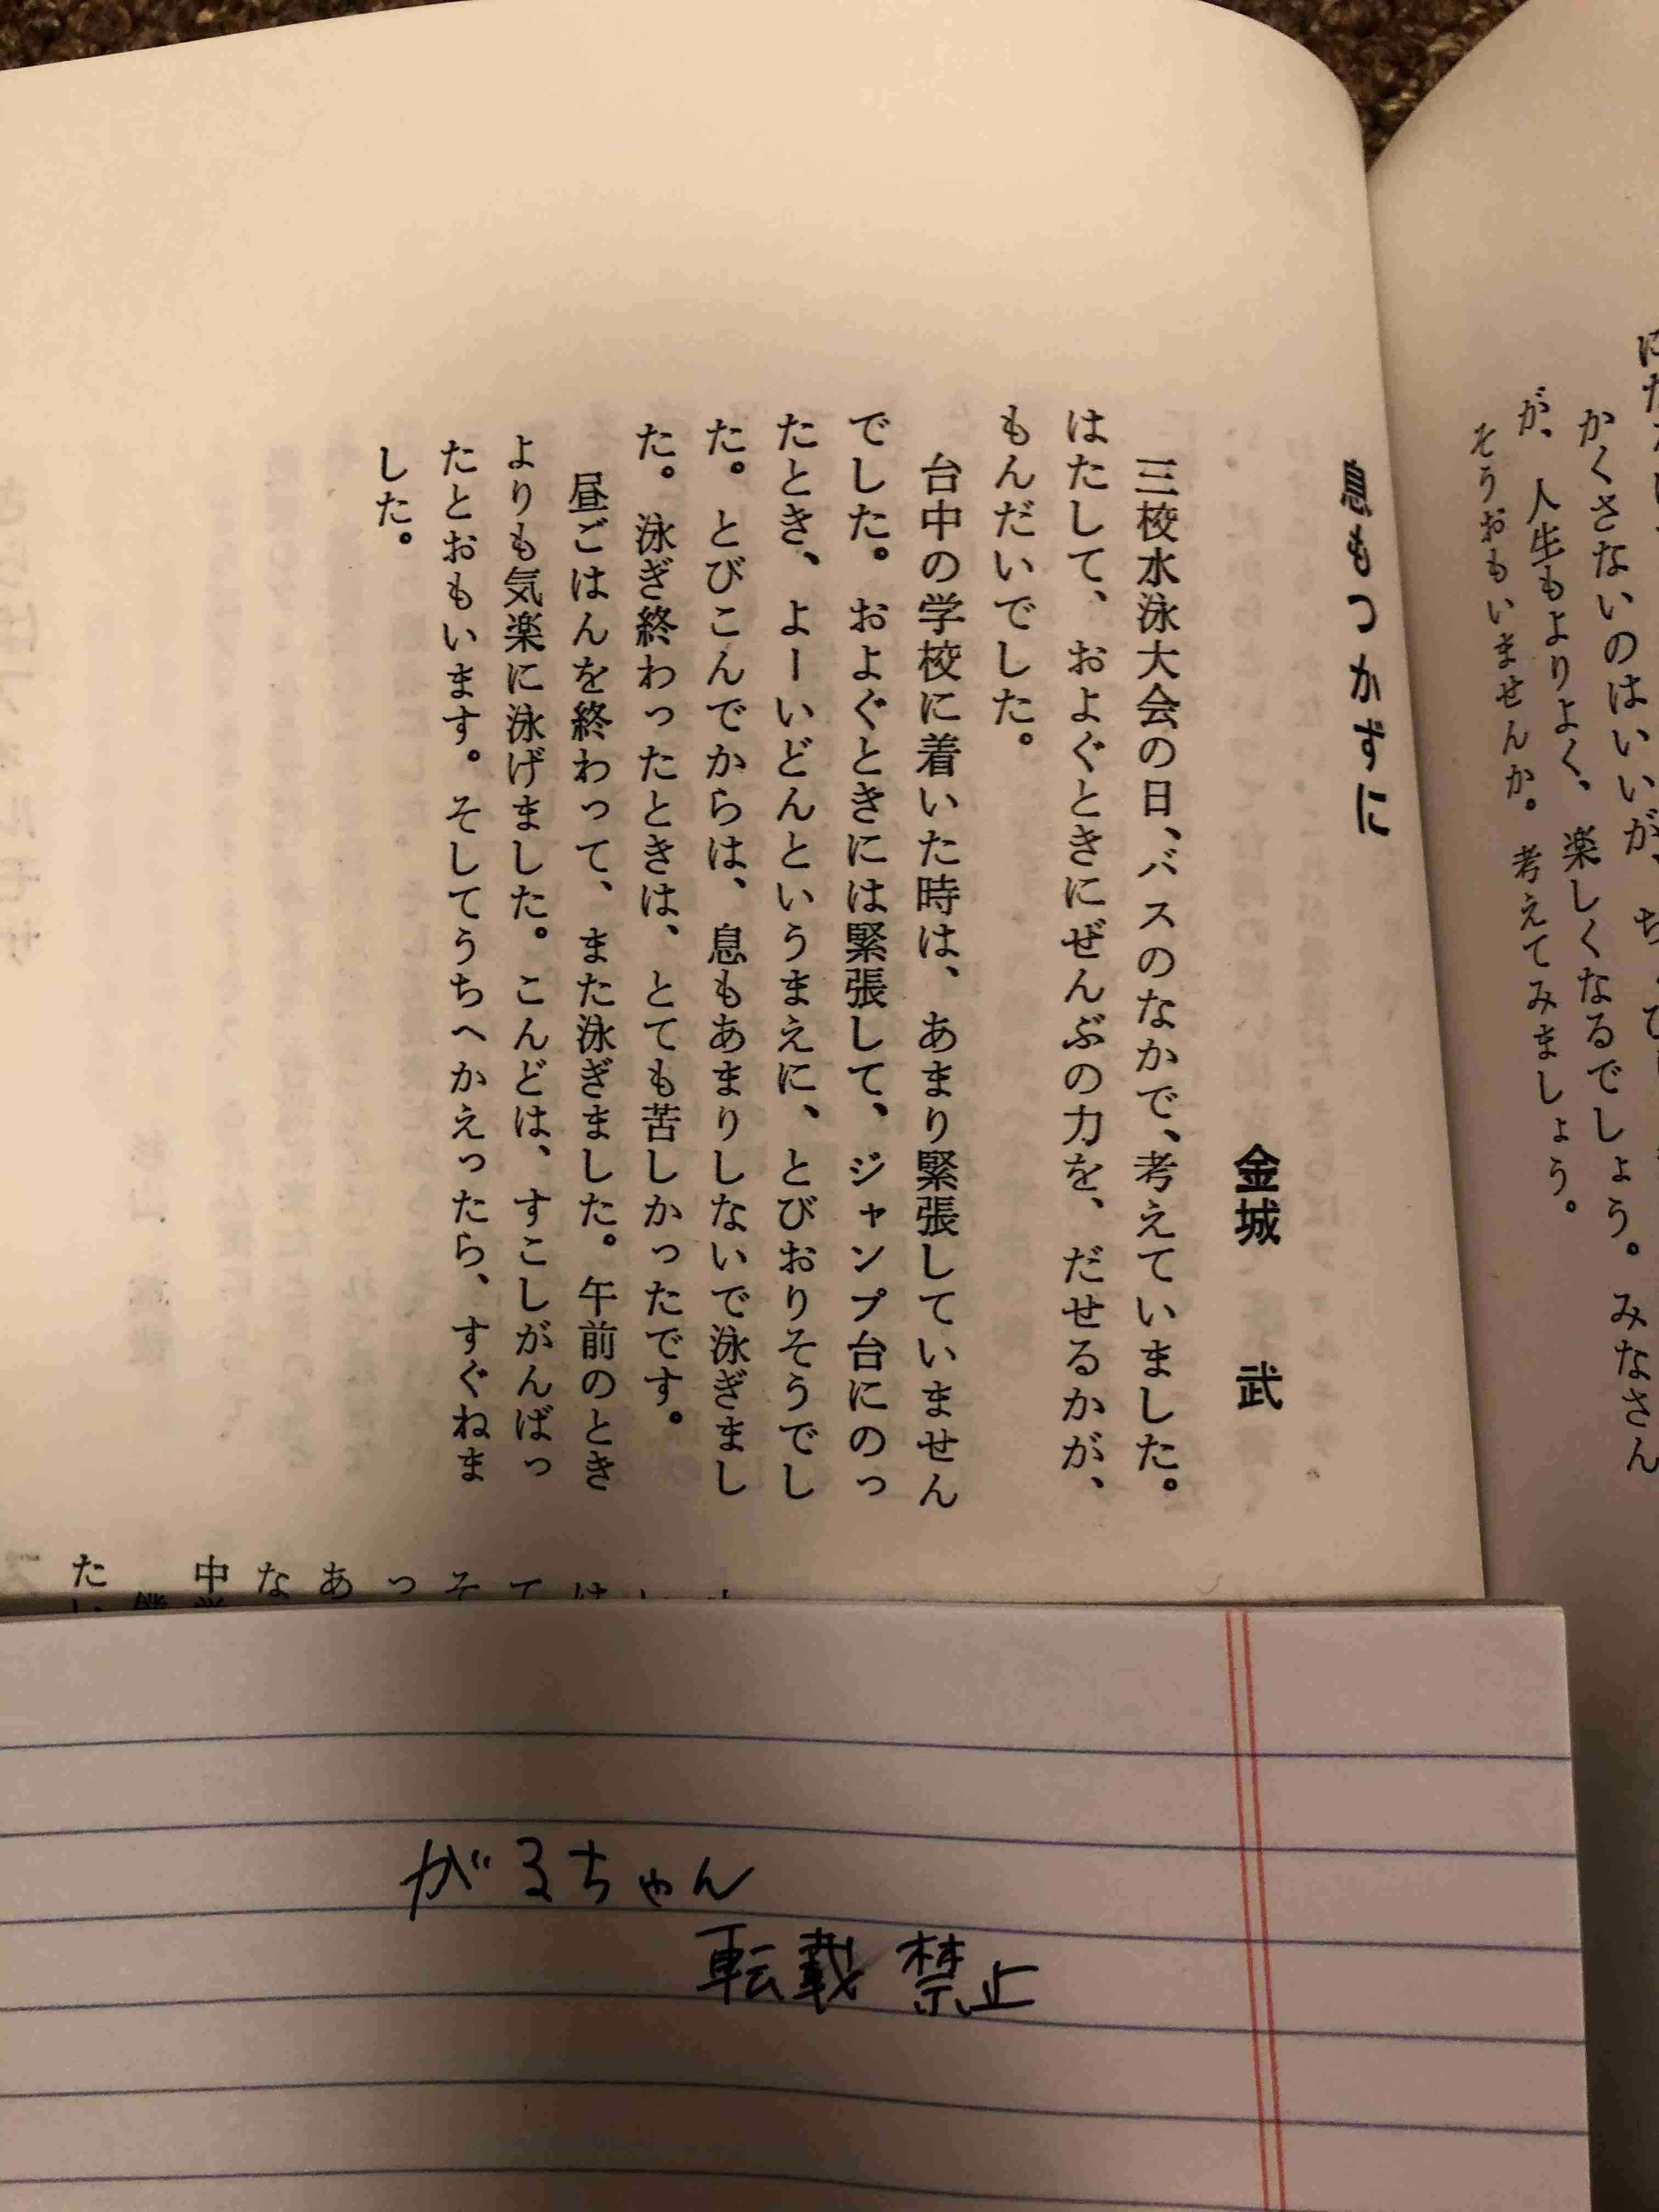 かくさないのはいいが、ち
が、人生もよりよく、楽しくなるでしょう。みなさん
そうおもいませんか。考えてみましょう。
息もつかずに
金城　武
三校水泳大会の日、バスのなかで、考えていました。
はたして、およぐときにぜんぶの力を、だせるかが、
もんだいでした。
台中の学校に着いた時は、あまり緊張していません
でした。およぐときには緊張して、ジャンプ台にのっ
たとき、よーいどんというまえに、とびおりそうでし
た。とびこんでからは、息もあまりしないで泳ぎまし
た。泳ぎ終わったときは、とても苦しかったです。
昼ごはんを終わって、また泳ぎました。午前のとき
よりも気楽に泳げました。こんどは、すこしがんばっ
たとおもいます。そしてうちへかえったら、すぐねま
した。
そ
っ
あ
な
中
た
がるちゃん
転載禁止